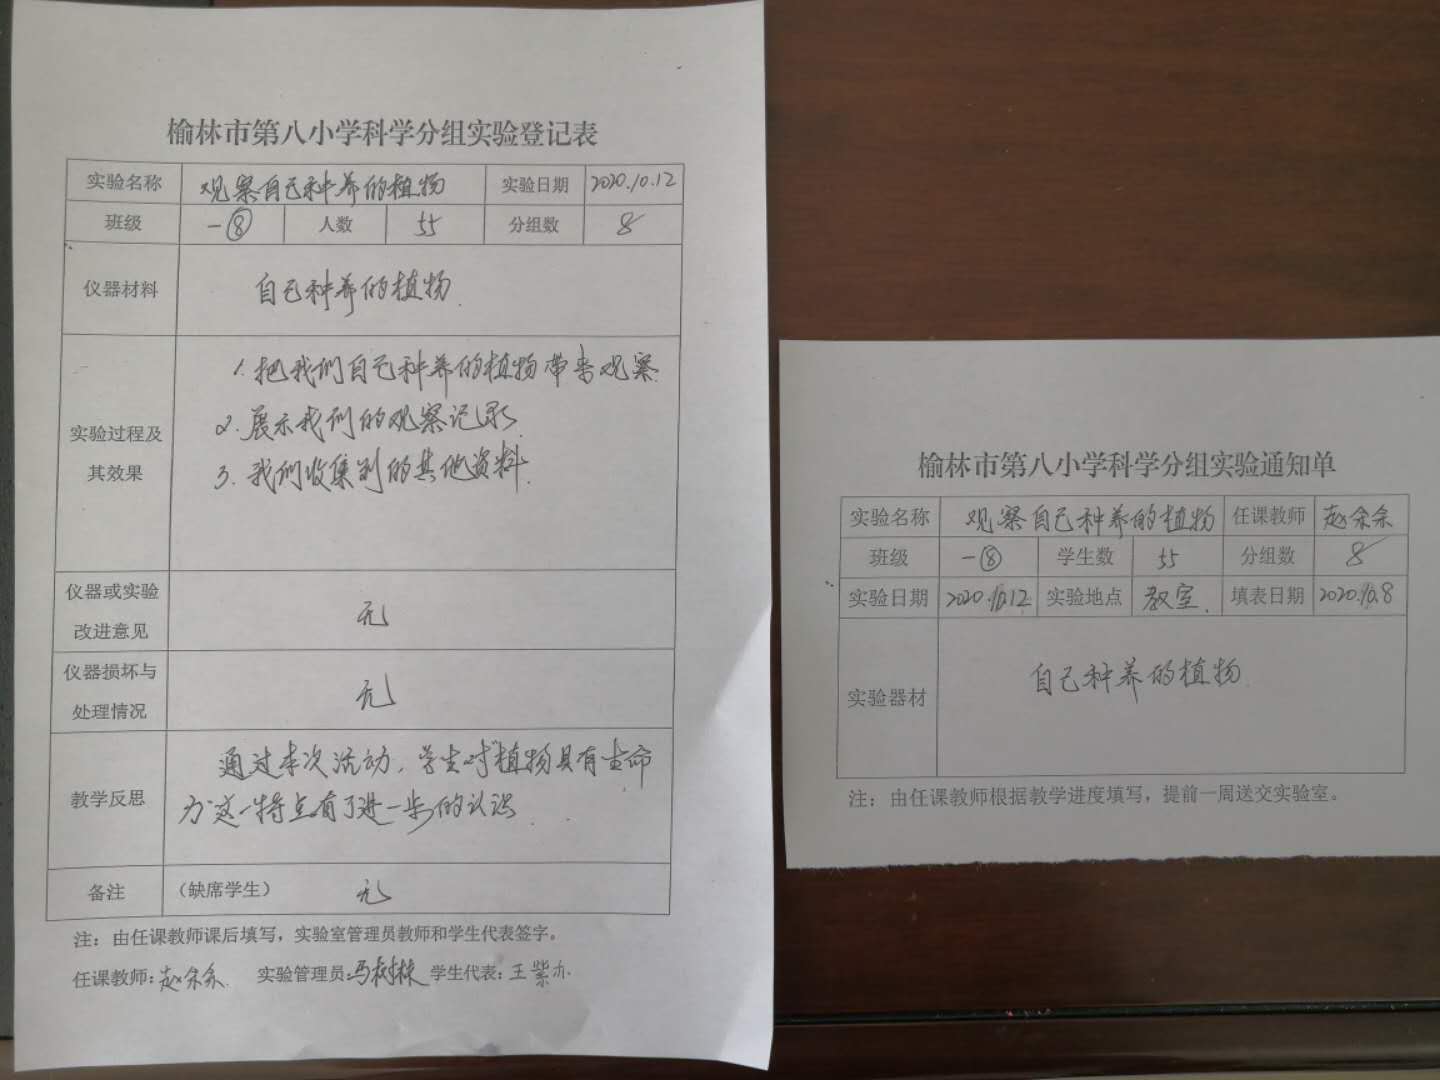 榆林市第八小学科学分组实验登记表
实验名称 观察自己种养的植物 实验日期 2020.10.12
班级 一⑧ 人数 55 分组数 8
仪器材料 自己种养的植物.
实验过程及其效果
1.把我们自己种养的植物带来观察.
2.展示我们的观察记录.
3.我们收集到的其他资料.
仪器或实验改进意见 无
仪器损坏与处理情况 无
教学反思 通过本次活动,学生对“植物具有生命
力”这一特点有了进一步的认识.
备注 (缺席学生) 无
注:由任课教师课后填写,实验室管理员教师和学生代表签字。
任课教师: 赵余余 实验管理员:马树林 学生代表:王紫
榆林市第八小学科学分组实验通知单
实验名称 观察自己种养的植物 任课教师 赵余余
班级 一⑧ 学生数 55 分组数 8
实验日期 2020.10.12 实验地点 教室. 填表日期 2020.10.8
实验器材 自己种养的植物.
注:由任课教师根据教学进度填写,提前一周送交实验室。